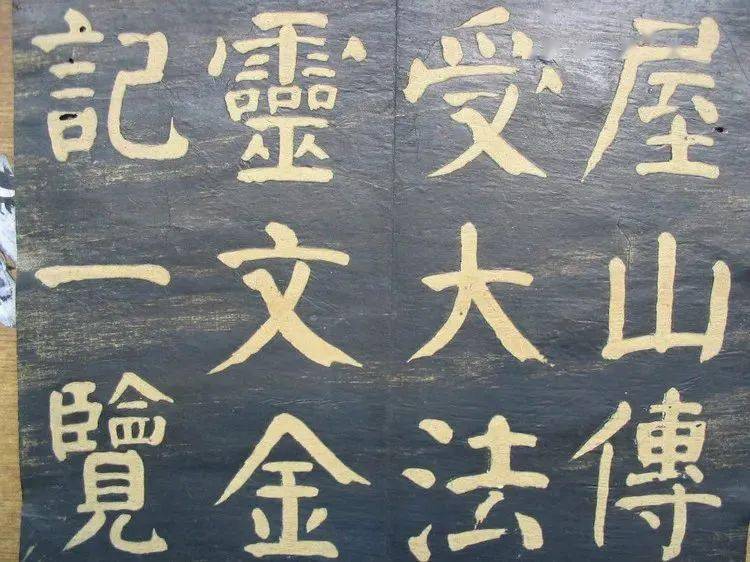 屋山傳
受大法
靈文金
記一覽